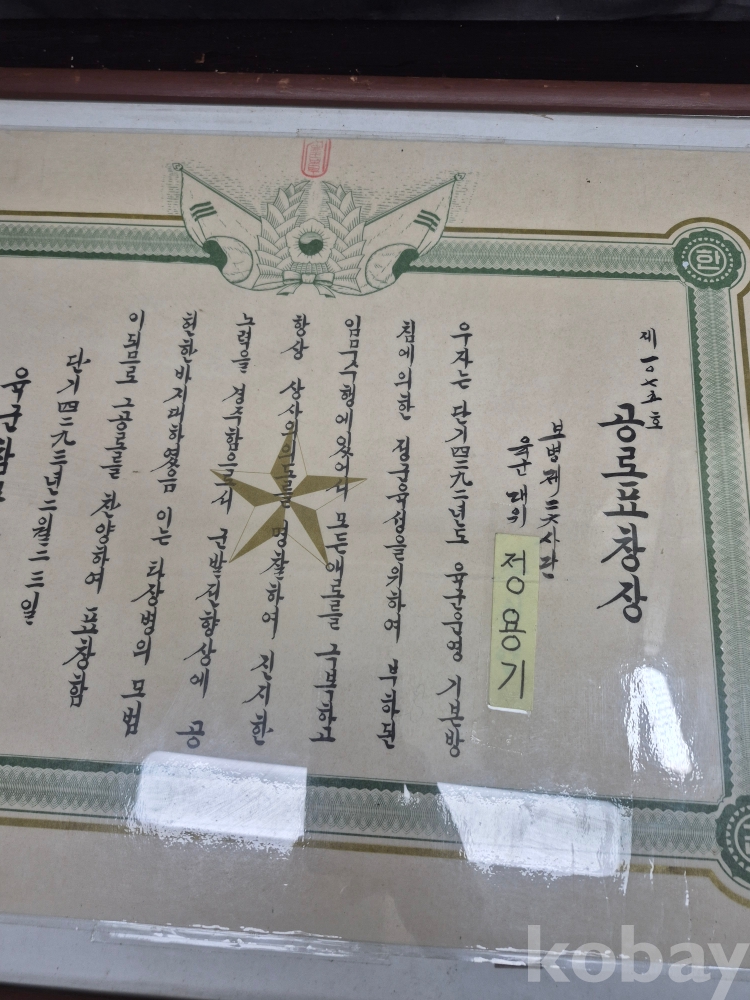 제一〇七五호
공로표창장
보병제三六사단
육군대위
정용기
우자는 단기四二九二년도 육군운영 기본방
침에 의한 전투력 을위하여 부하된
임무수행에있어서 모든애로를 극복하고
항상 상사의의도를 명찰하여 진지한
노력을 경주함으로서 군발전향상에 공
헌한바지대하였음 이는 타장병의 모범
이되므로 그공로를 찬양하여 표창함
단기四二九三년二월二三일
육군참모
한
kobay